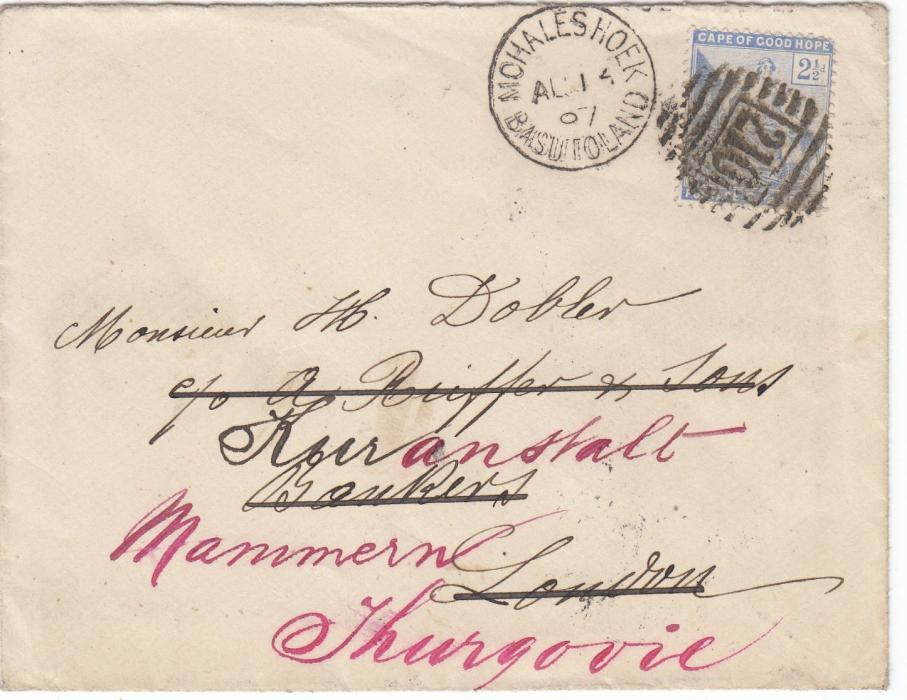 MOHALESHOEK
AU 14
07
BASUTOLAND
CAPE OF GOOD HOPE
2½d
Monsieur H. Dobler
c/o A Rüffer & Sons
Kuranstalt
Bankers
Mammern
London
Thurgovie